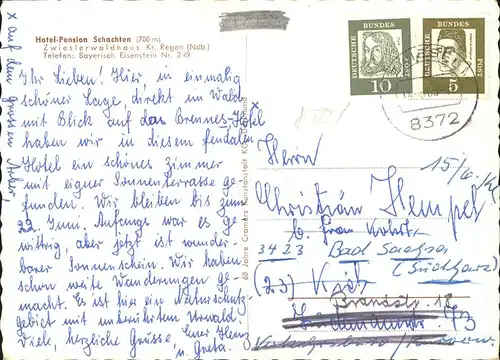 Hotel-Pension Schachten (700 m)
Zwieslerwaldhaus Kr. Regen (Ndb.)
Telefon: Bayerisch Eisenstein Nr. 249
x auf dem Grossen Arber
Ihr Lieben! Hier, in einmalig
schöner Lage, direkt im Wald
mit Blick auf das Brennes-Hotel x
haben wir in diesem feudalen
Hotel ein schönes Zimmer
mit eigner Sonnenterrasse ge-
funden. Wir bleiben bis zum
22. Juni. Anfangs war es ge-
wittrig, aber jetzt ist wunder-
barer Sonnenschein. Wir haben
schon weite Wanderungen ge-
macht. Es ist hier ein Naturschutz-
gebiet mit unberührtem Urwald.
Viele, herzliche Grüsse, Euer Heinz
u. Greta.
60 Jahre Cramers Kunstanstalt KG, Dortmund
DEUTSCHE BUNDESPOST
10
DEUTSCHE BUNDESPOST
5
8372
Herrn
Christian Hempel
b. Frau
3423 Bad Sachsa
(Südharz)
(23)
Brandstr. 12